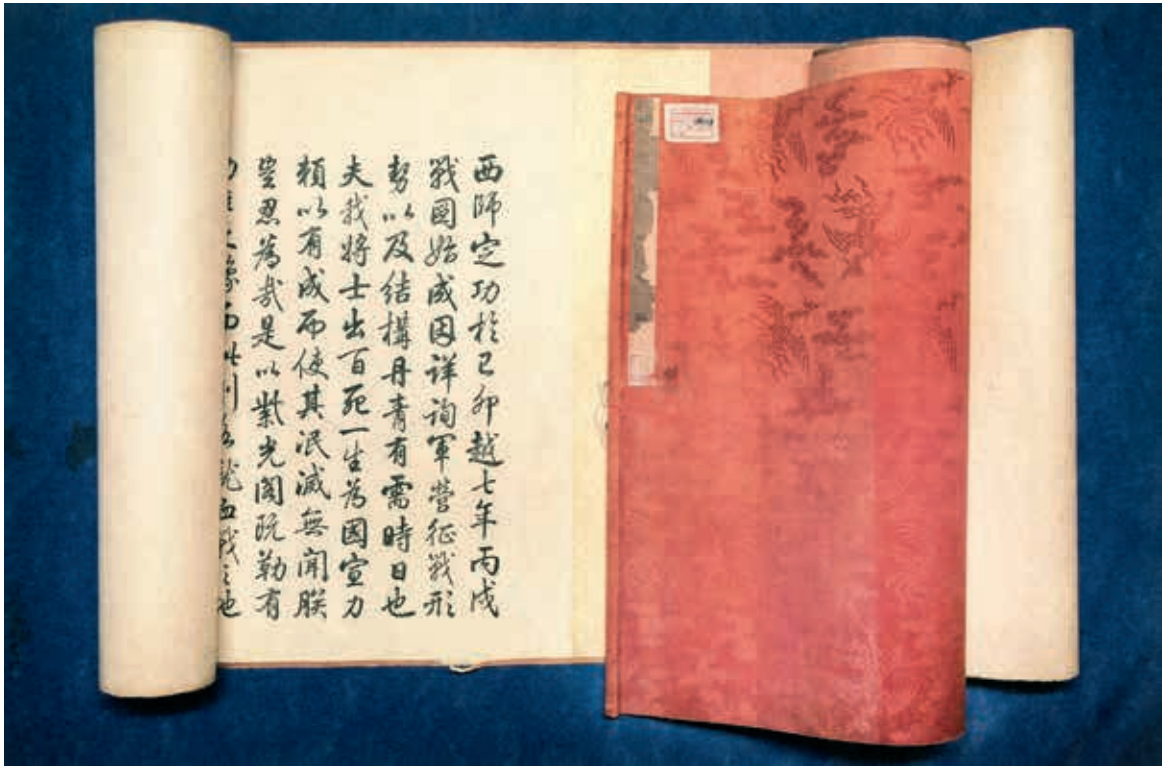 西師定功於己卯越七年丙戌
戰圖始成因詳詢軍營征戰形
勢以及結構丹青有需時日也
夫我將士出百死一生為國宣力
賴以有成而使其泯滅無聞朕
豈忍為哉是以紫光閣既勒有
之像而此則各就血戰之地